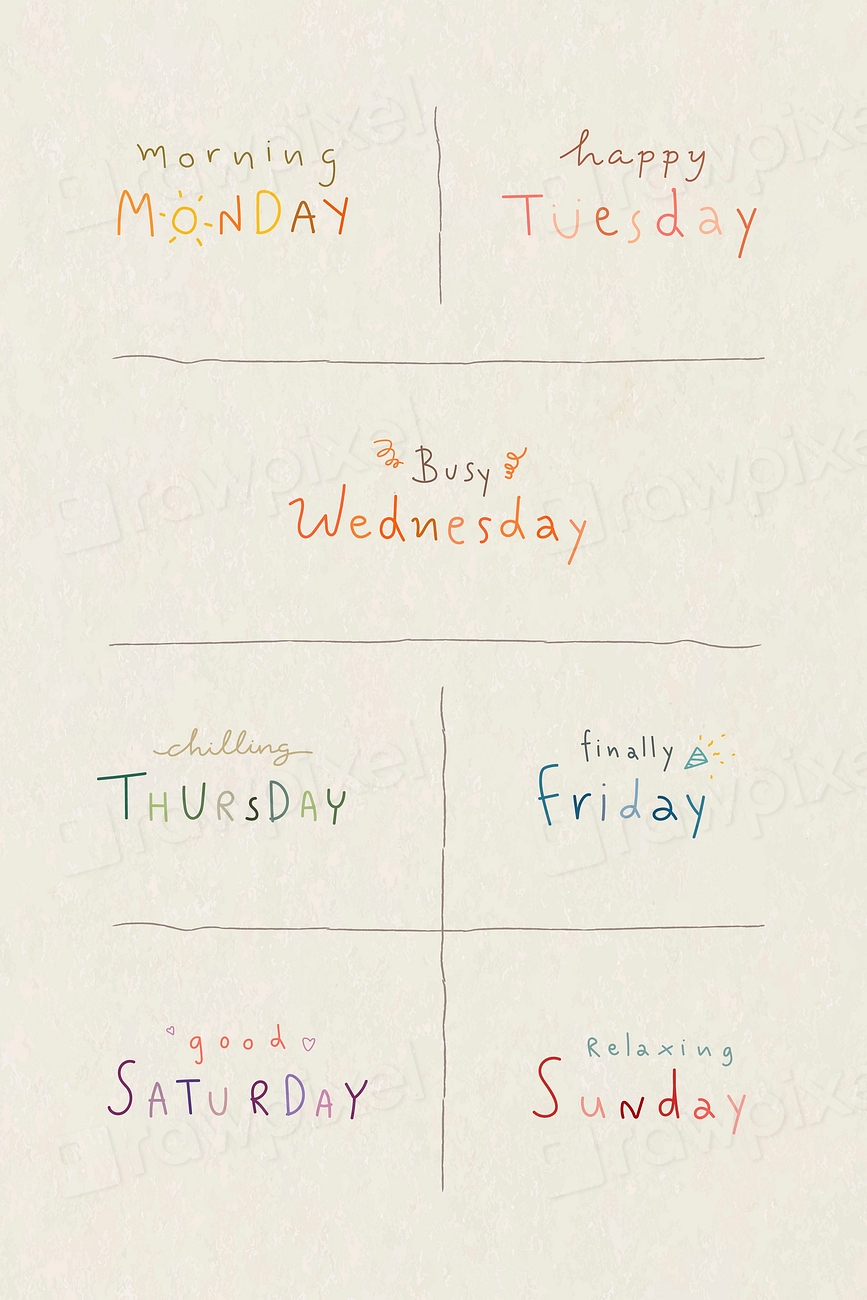 morning
MONDAY
happy
Tuesday
Busy
Wednesday
chilling
THURSDAY
finally
Friday
good
SATURDAY
Relaxing
Sunday
rawpixel
rawpixel
rawpixel
rawpixel
rawpixel
rawpixel
rawpixel
rawpixel